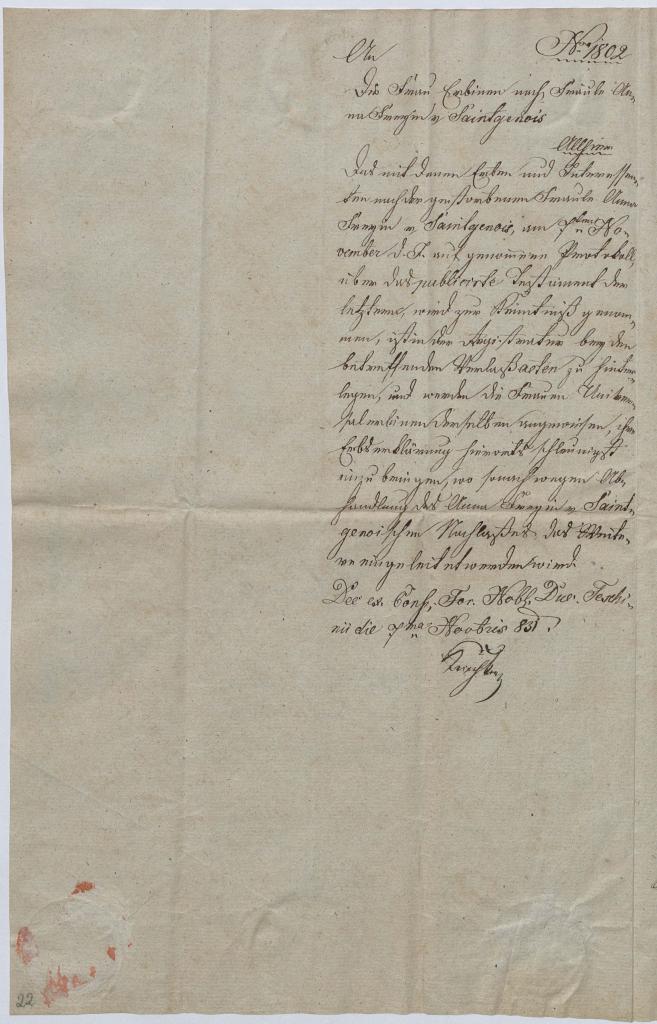 An
Nro 1802
Die Frau Erbinen nach Fräule An-
na Freyin v Saintgenois
Allhier
Das mit denen Erben und Interessen-
ten nach der gestorbenen Fräule Anna
Freyin v Saintgenois, am 7ten No-
vember d. J. aufgenomene Protokoll,
über das publicirte Testament der
letztern, wird zur Kenntniß genom-
men, ist in der Registratur bey den
betreffenden Verlaßacten zu hinter-
legen, und werden die Frauen Univer-
salerbinen derselben angewiesen, ihre
Erbserklärung hierorts schleunigst
einzubringen, wo sonach wegen Ab-
handlung des Anna Freyin v Saint-
genoischen Nachlaßes das Weite-
re eingeleitet werden wird.
Dec ex Cons. For. Nobl. Duc. Teschi-
nii die 7ma Novbris 831.